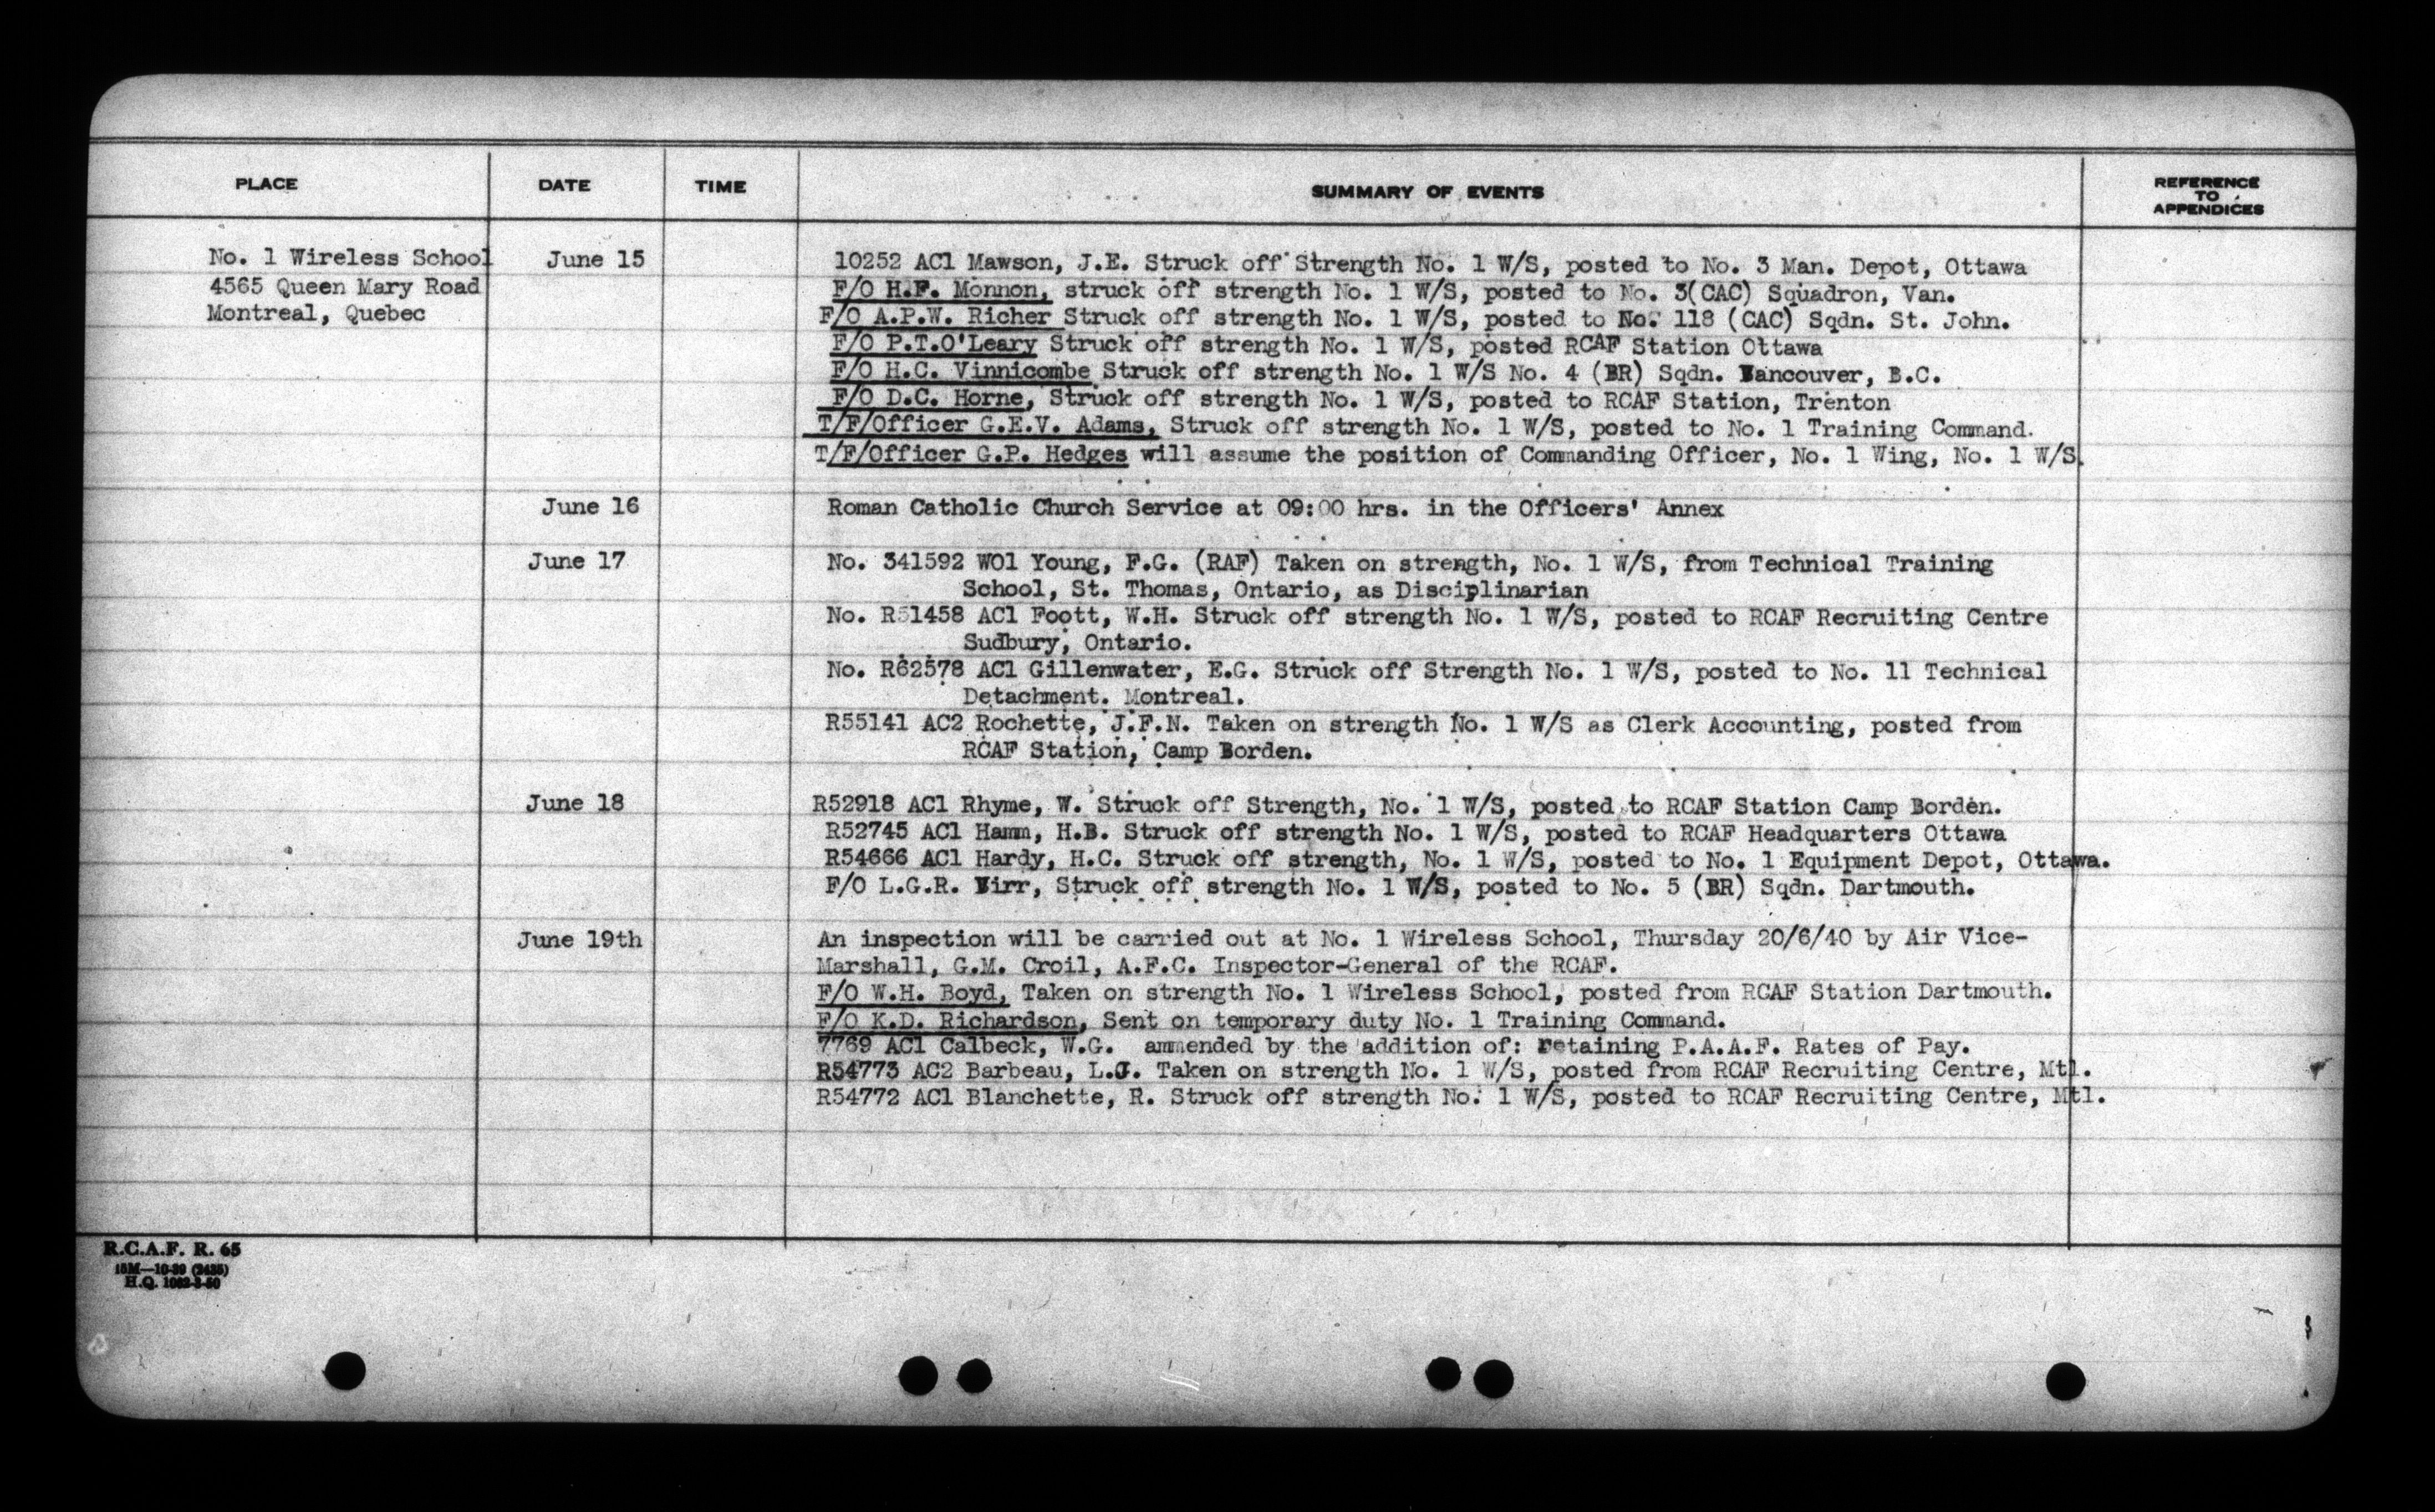 PLACE DATE TIME SUMMARY OF EVENTS REFERENCE TO APPENDICES
No. 1 Wireless School June 15 10252 AC1 Mawson, J.E. Struck off Strength No. 1 W/S, posted to No. 3 Man. Depot, Ottawa
4565 Queen Mary Road F/O H.F. Monnon, struck off strength No. 1 W/S, posted to No. 3(CAC) Squadron, Van.
Montreal, Quebec F/O A.P.W. Richer Struck off strength No. 1 W/S, posted to No. 118 (CAC) Sqdn. St. John.
F/O P.T.O'Leary Struck off strength No. 1 W/S, posted RCAF Station Ottawa
F/O H.C. Vinnicombe Struck off strength No. 1 W/S No. 4 (BR) Sqdn. Vancouver, B.C.
F/O D.C. Horne, Struck off strength No. 1 W/S, posted to RCAF Station, Trenton
T/F/Officer G.E.V. Adams, Struck off strength No. 1 W/S, posted to No. 1 Training Command.
T/F/Officer G.P. Hedges will assume the position of Commanding Officer, No. 1 Wing, No. 1 W/S.
June 16 Roman Catholic Church Service at 09:00 hrs. in the Officers' Annex
June 17 No. 341592 WO1 Young, F.G. (RAF) Taken on strength, No. 1 W/S, from Technical Training
School, St. Thomas, Ontario, as Disciplinarian
No. R51458 AC1 Foott, W.H. Struck off strength No. 1 W/S, posted to RCAF Recruiting Centre
Sudbury, Ontario.
No. R62578 AC1 Gillenwater, E.G. Struck off Strength No. 1 W/S, posted to No. 11 Technical
Detachment. Montreal.
R55141 AC2 Rochette, J.F.N. Taken on strength No. 1 W/S as Clerk Accounting, posted from
RCAF Station, Camp Borden.
June 18 R52918 AC1 Rhyme, W. Struck off Strength, No. 1 W/S, posted to RCAF Station Camp Borden.
R52745 AC1 Hamm, H.B. Struck off strength No. 1 W/S, posted to RCAF Headquarters Ottawa
R54666 AC1 Hardy, H.C. Struck off strength, No. 1 W/S, posted to No. 1 Equipment Depot, Ottawa.
F/O L.G.R. Virr, Struck off strength No. 1 W/S, posted to No. 5 (BR) Sqdn. Dartmouth.
June 19th An inspection will be carried out at No. 1 Wireless School, Thursday 20/6/40 by Air Vice-
Marshall, G.M. Croil, A.F.C. Inspector-General of the RCAF.
F/O W.H. Boyd, Taken on strength No. 1 Wireless School, posted from RCAF Station Dartmouth.
F/O K.D. Richardson, Sent on temporary duty No. 1 Training Command.
7769 AC1 Calbeck, W.G. ammended by the addition of: retaining P.A.A.F. Rates of Pay.
R54773 AC2 Barbeau, L.J. Taken on strength No. 1 W/S, posted from RCAF Recruiting Centre, Mtl.
R54772 AC1 Blanchette, R. Struck off strength No. 1 W/S, posted to RCAF Recruiting Centre, Mtl.
R.C.A.F. R. 65
15M—10-39 (2435)
H.Q. 1062-3-50